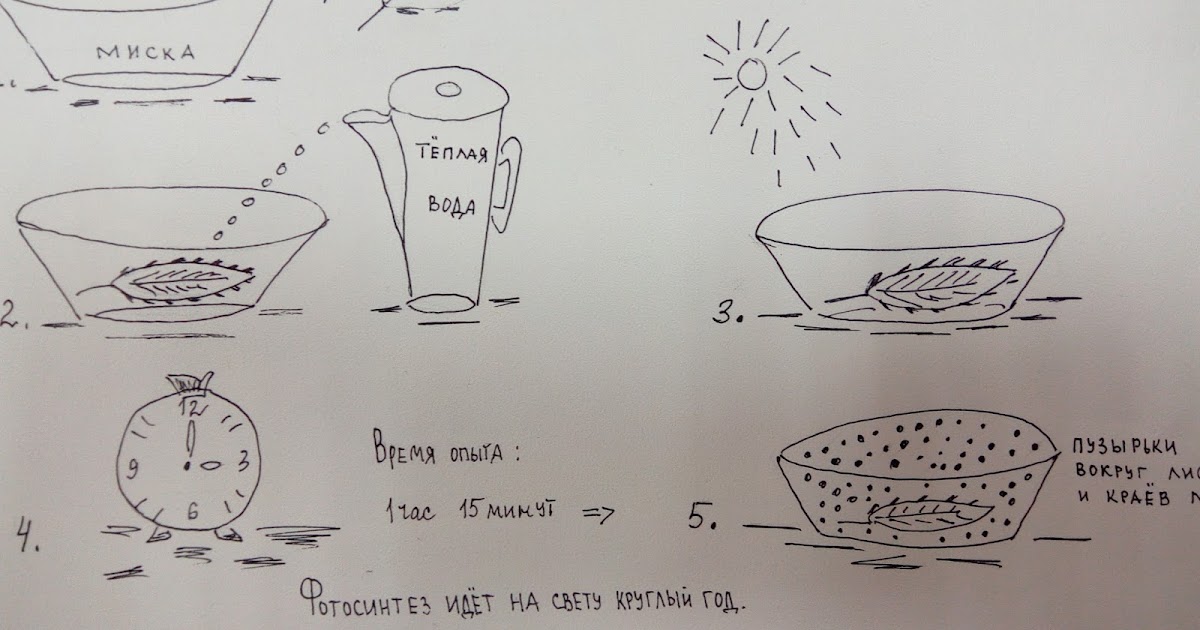 МИСКА
ТЁПЛАЯ
ВОДА
2.
3.
12
9
3
6
4.
Время опыта:
1 час 15 минут =>
5.
ПУЗЫРЬКИ
ВОКРУГ
И КРАЁВ
Фотосинтез идёт на свету круглый год.